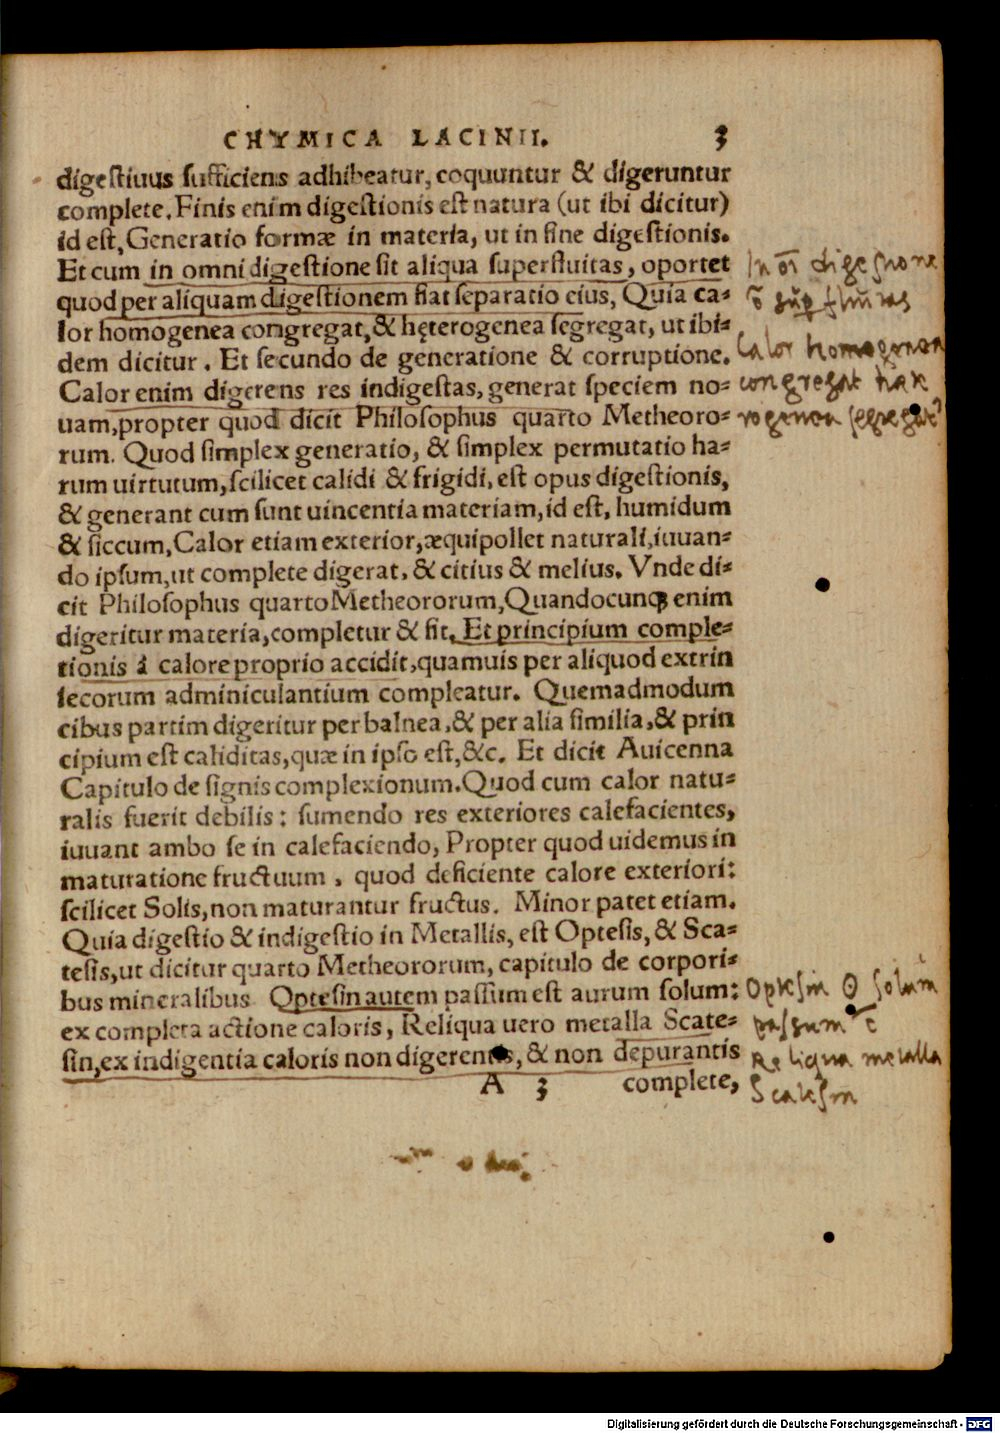 CHYMICA LACINII. 3
digestiuus sufficiens adhibeatur, coquuntur & digeruntur
complete. Finis enim digestionis est natura (ut ibi dicitur)
id est, Generatio formæ in materia, ut in fine digestionis.
Et cum in omni digestione sit aliqua superfluitas, oportet
quod per aliquam digestionem fiat separatio eius, Quia ca-
lor homogenea congregat, & hęterogenea segregat, ut ibi-
dem dicitur. Et secundo de generatione & corruptione.
Calor enim digerens res indigestas, generat speciem no-
uam, propter quod dicit Philosophus quarto Metheoro-
rum. Quod simplex generatio, & simplex permutatio ha-
rum uirtutum, scilicet calidi & frigidi, est opus digestionis,
& generant cum sunt uincentia materiam, id est, humidum
& siccum, Calor etiam exterior, æquipollet naturali, iuuan-
do ipsum, ut complete digerat, & citius & melius. Vnde di-
cit Philosophus quarto Metheororum, Quandocunq; enim
digeritur materia, completur & fit. Et principium comple-
tionis à calore proprio accidit, quamuis per aliquod extrin
secorum adminiculantium compleatur. Quemadmodum
cibus partim digeritur per balnea, & per alia similia, & prin
cipium est caliditas, quæ in ipso est, &c. Et dicit Auicenna
Capitulo de signis complexionum. Quod cum calor natu-
ralis fuerit debilis: sumendo res exteriores calefacientes,
iuuant ambo se in calefaciendo, Propter quod uidemus in
maturatione fructuum, quod deficiente calore exteriori:
scilicet Solis, non maturantur fructus. Minor patet etiam.
Quia digestio & indigestio in Metallis, est Optesis, & Sca-
tesis, ut dicitur quarto Metheororum, capitulo de corpori-
bus mineralibus. Optesin autem passum est aurum solum:
ex completa actione caloris, Reliqua uero metalla Scate-
sin, ex indigentia caloris non digerentis, & non depurantis
A 3 complete,
In oi digestione
Calor homogenea
congregat
segregat
Optesin ☉ solum
passum ē
Reliqua metalla
Scatesin
Digitalisierung gefördert durch die Deutsche Forschungsgemeinschaft - DFG